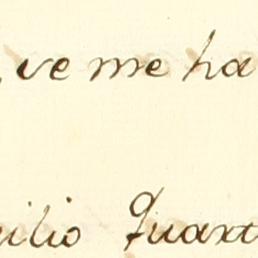 ve me ha
ilio Quart